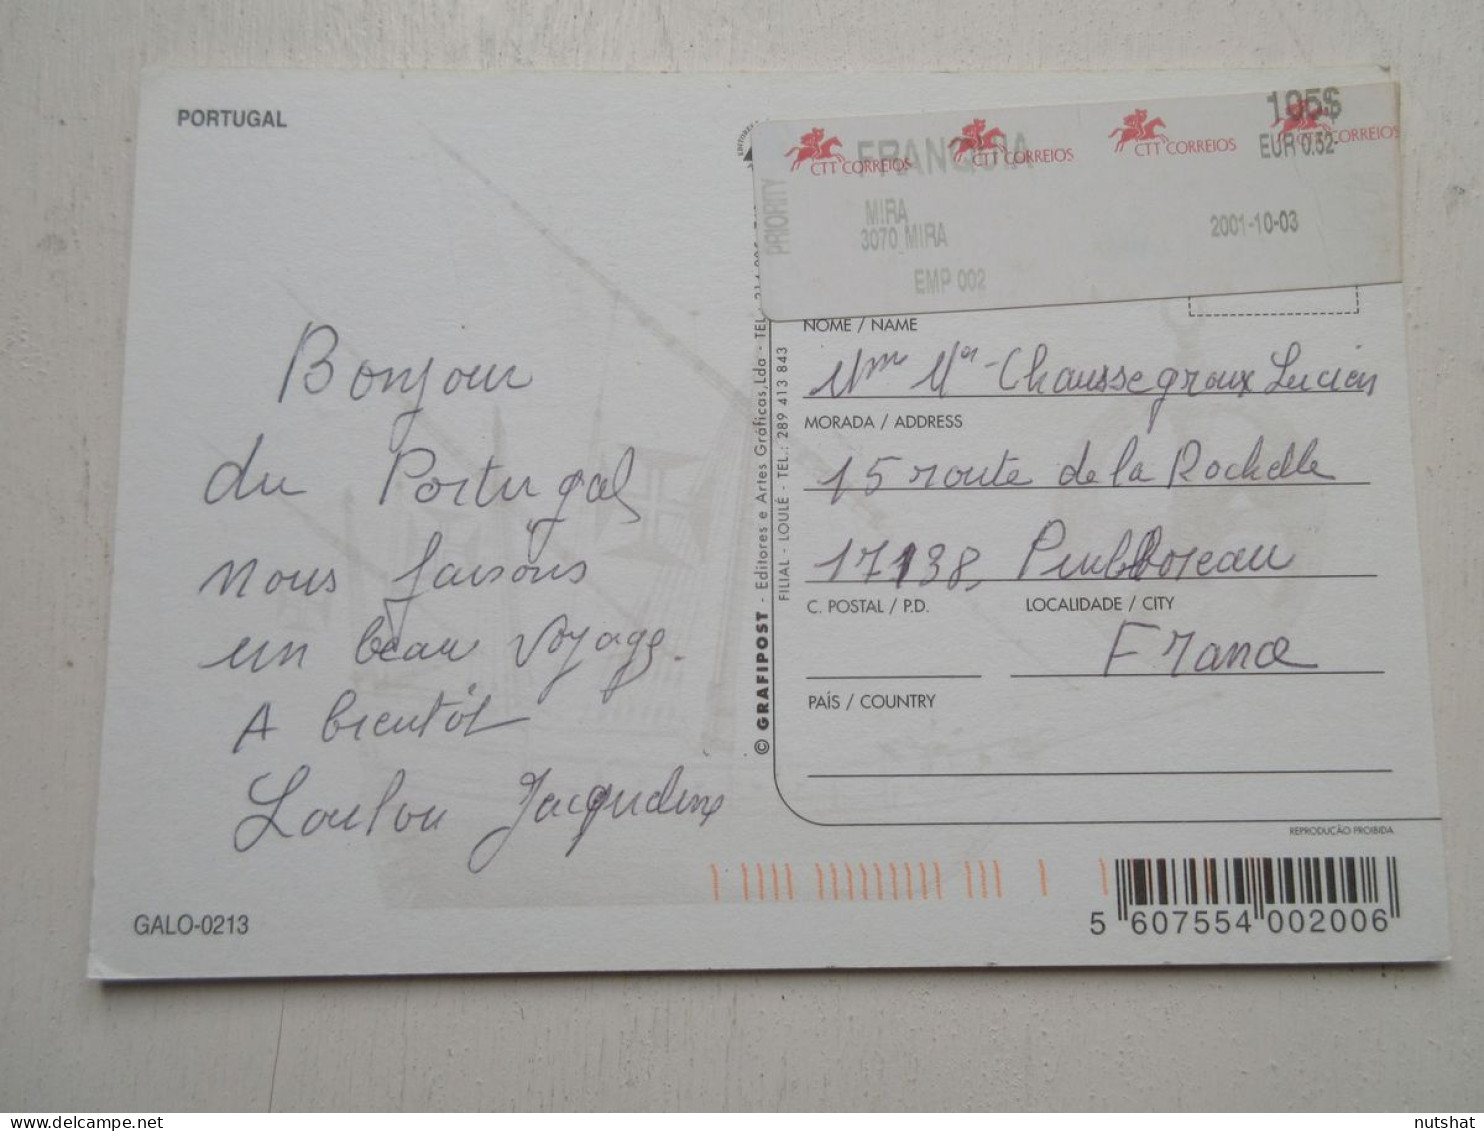 PORTUGAL
Bonjour
du Portugal
nous faisons
un beau voyage.
A bientôt
Loulou Jacqueline
GALO-0213
© GRAFIPOST - Editores e Artes Gráficas, Lda - TEL.
FILIAL - LOULÉ - TEL.: 289 413 843
CTT CORREIOS CTT CORREIOS CTT CORREIOS CTT CORREIOS
FRANQUIA
195$
EUR 0.52
PRIORITY
MIRA
3070 MIRA
2001-10-03
EMP 002
NOME / NAME
Mme Mr - Chaussegroux Lucien
MORADA / ADDRESS
15 route de la Rochelle
17138 Puilboreau
C. POSTAL / P.D.
LOCALIDADE / CITY
France
PAÍS / COUNTRY
REPRODUÇÃO PROIBIDA
5 607554 002006
nutshat